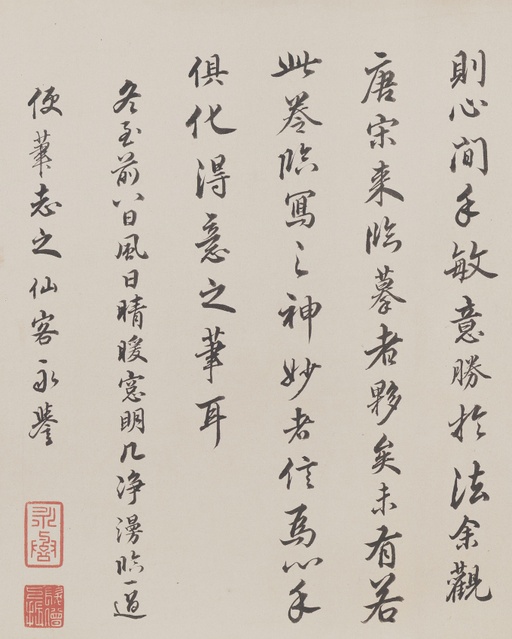 則心閒手敏意勝於法余觀
唐宋來臨摹者夥矣未有若
此卷臨寫之神妙者信為心手
俱化得意之筆耳
冬至前八日風日晴暖窓明几净漫臨一過
便筆志之仙客永譽
永譽